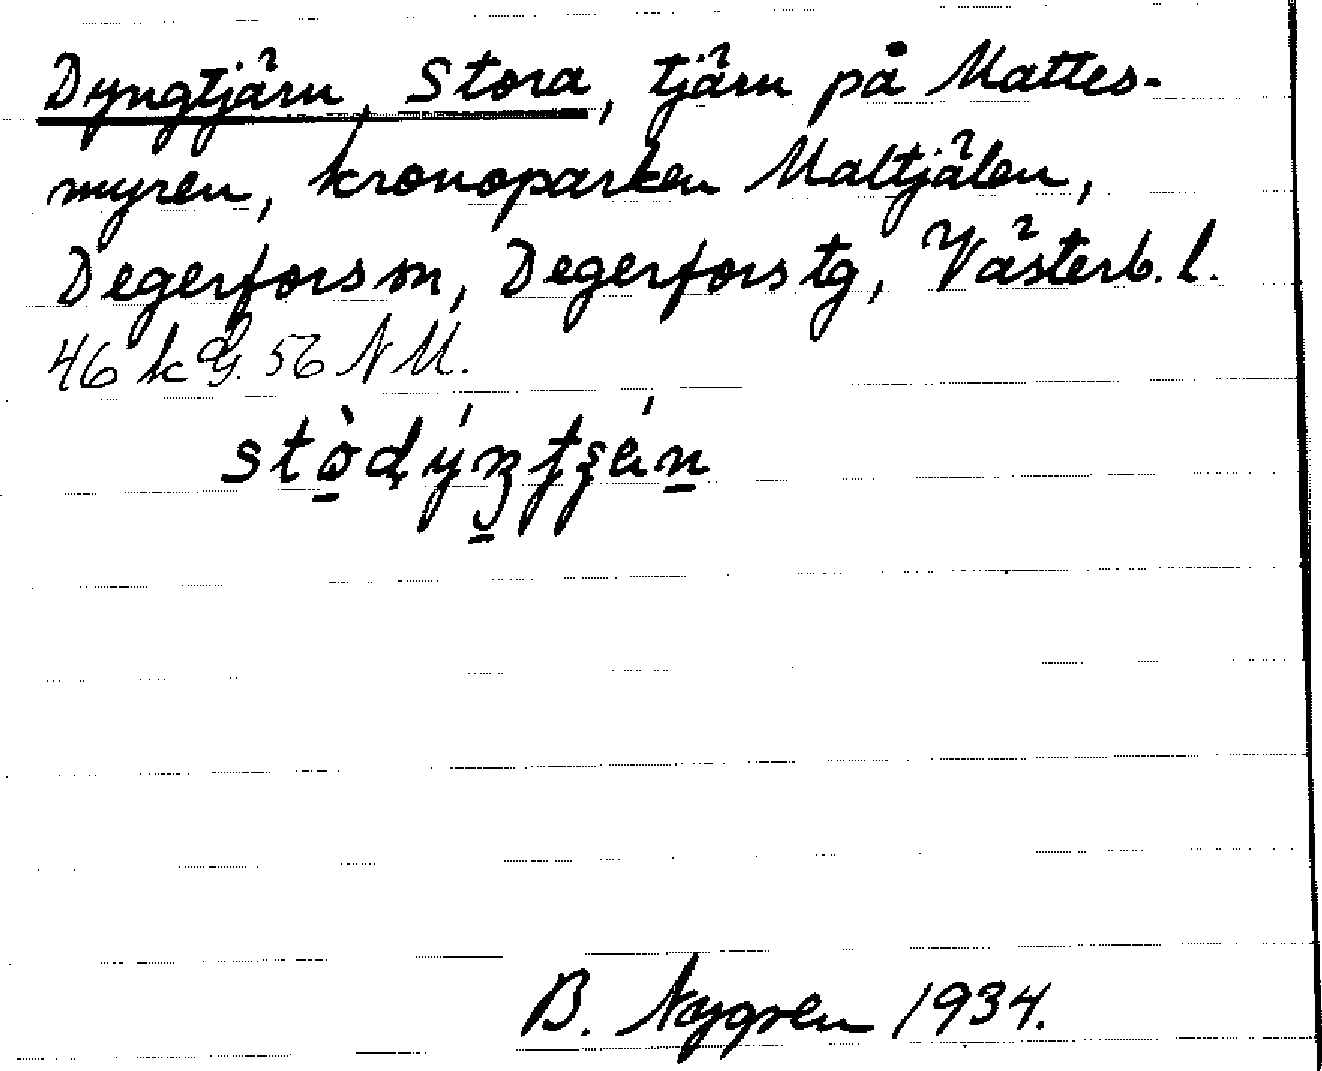 Dyngtjärn, Stora, tjärn på Mattes-
myren, kronoparken Maltjälen,
Degerfors sn, Degerfors tg, Västerb. l.
46 k G. 56 N U.
B. Nygren 1934.